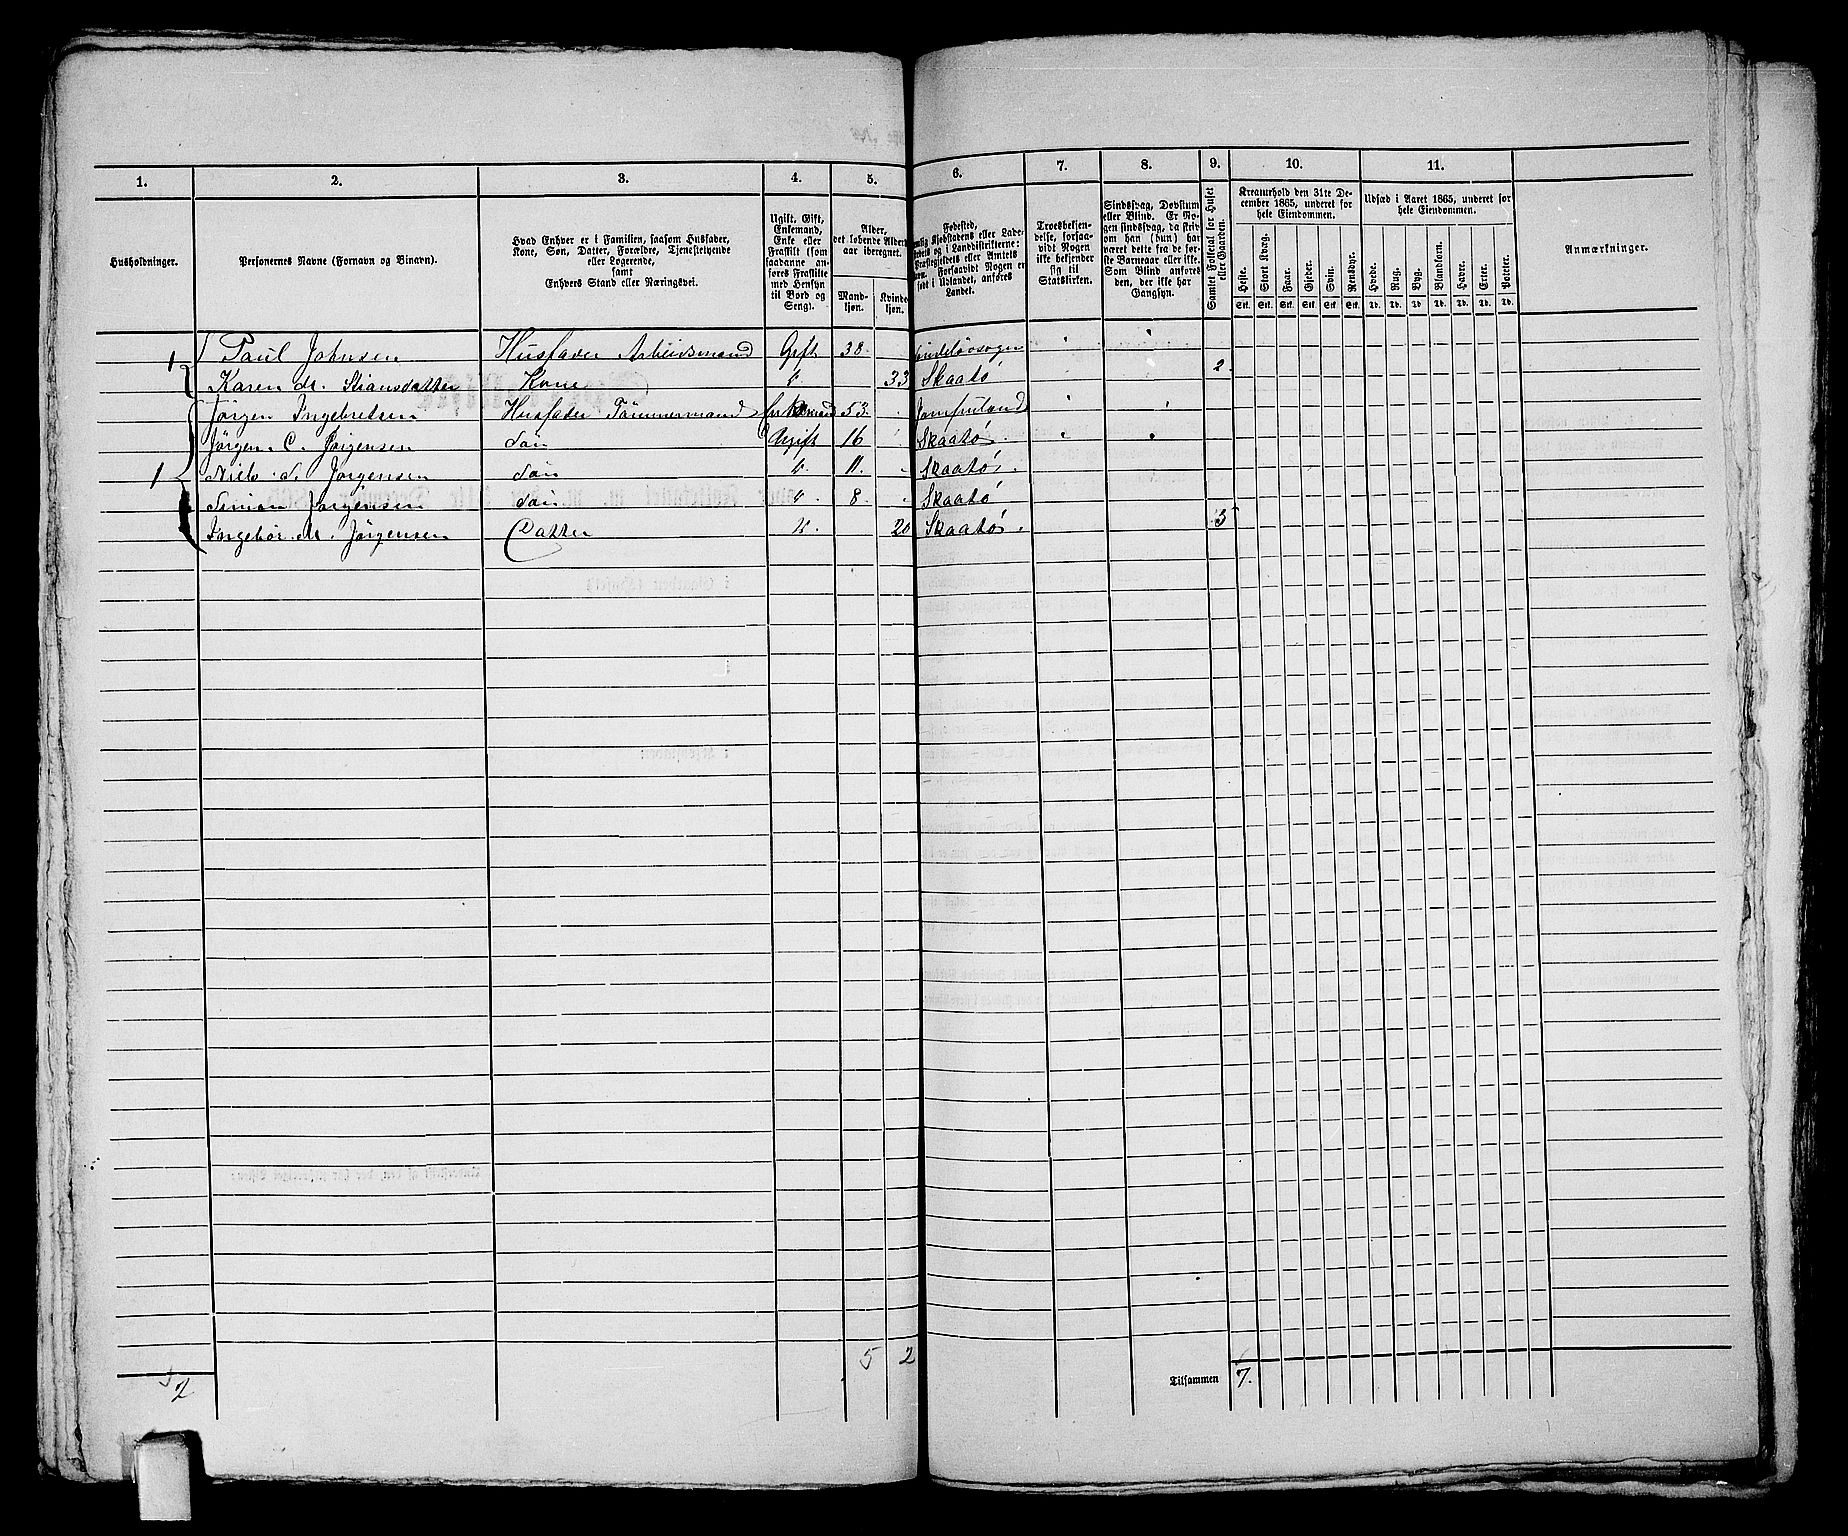 1. 2. 3. 4. 5. 6. 7. 8. 9. 10. 11.
Husholdninger.
Personernes Navne (Fornavn og Binavn).
Hvad Enhver er i Familien, saasom Husfader,
Kone, Søn, Datter, Forældre, Tjenestetyende
eller Logerende,
samt
Enhvers Stand eller Næringsvei.
Ugift, Gift,
Enkemand,
Enke eller
Fraskilt (som
saadanne an-
føres Fraskilte
med Hensyn
til Bord og
Seng).
Alder,
det løbende Alders-
aar iberegnet.
Mand-
kjøn.
Kvinde-
kjøn.
Fødested,
Kjøbstadens eller Lade-
i Landdistrikterne:
Præstegjeldets eller Amtets
Forsaavidt Nogen er
født i Udlandet, anføres
Landet.
Troesbekjen-
delse, forsaa-
vidt Nogen
ikke bekjender
sig til
Statskirken.
Sindssvag, Døvstum
eller Blind. Er No-
gen sindssvag, da skriv
om han (hun) har
været dette fra de før-
ste Barneaar eller ikke.
Som Blind anføres
den, der ikke har
Gangsyn.
Samlet Folketal for Huset
eller Gaarden.
Kreaturhold den 31te De-
cember 1865, underet for
hele Eiendommen.
Heste. Stort Kvæg. Faar. Gjeder. Svin. Rensdyr.
Stk. Stk. Stk. Stk. Stk. Stk.
Udsæd i Aaret 1865, underet for
hele Eiendommen.
Hvede. Rug. Byg. Blandkorn. Havre. Erter. Poteter.
Td. Td. Td. Td. Td. Td. Td.
Anmærkninger.
1 Paul Johnsen Husfader Arbeidsmand Gift 38
Karen M. Kone " 33 Skaatö 2
Jörgen Ingebretsen Husfader Tömmermand Enkemand 53
Jörgen C. Jörgensen Sön Ugift 16 Skaatö
1 Niels Jörgensen Sön " 11 Skaatö
Simon Jörgensen Sön " 8 Skaatö
Ingebör M. Jörgensen Datter " 20 Skaatö 5
5 2
2 Tilsammen 7.